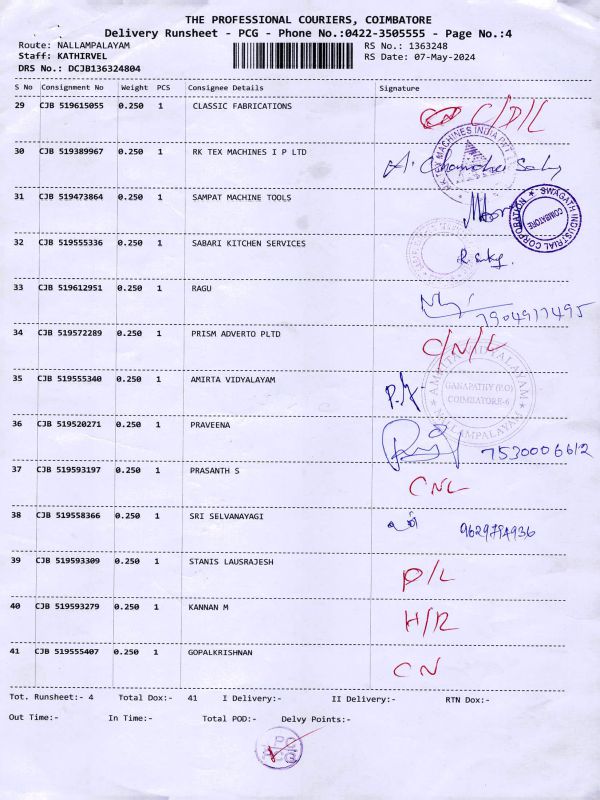 THE PROFESSIONAL COURIERS, COIMBATORE
Delivery Runsheet - PCG - Phone No.:0422-3505555 - Page No.:4
Route: NALLAMPALAYAM RS No.: 1363248
Staff: KATHIRVEL RS Date: 07-May-2024
DRS No.: DCJB136324804
S No Consignment No Weight PCS Consignee Details Signature
29 CJB 519615055 0.250 1 CLASSIC FABRICATIONS C/D/L
30 CJB 519389967 0.250 1 RK TEX MACHINES I P LTD
31 CJB 519473864 0.250 1 SAMPAT MACHINE TOOLS
SWAGATH INDUSTRIAL CORPORATION
COIMBATORE
32 CJB 519555336 0.250 1 SABARI KITCHEN SERVICES
33 CJB 519612951 0.250 1 RAGU 7904917495
34 CJB 519572289 0.250 1 PRISM ADVERTO PLTD C/N/L
35 CJB 519555340 0.250 1 AMIRTA VIDYALAYAM
GANAPATHY (P.O)
COIMBATORE-6
NALLAMPALAYAM
36 CJB 519520271 0.250 1 PRAVEENA 7530006612
37 CJB 519593197 0.250 1 PRASANTH S CNL
38 CJB 519558366 0.250 1 SRI SELVANAYAGI 9629794936
39 CJB 519593309 0.250 1 STANIS LAUSRAJESH D/L
40 CJB 519593279 0.250 1 KANNAN M H/R
41 CJB 519555407 0.250 1 GOPALKRISHNAN CN
Tot. Runsheet:- 4 Total Dox:- 41 I Delivery:- II Delivery:- RTN Dox:-
Out Time:- In Time:- Total POD:- Delvy Points:-